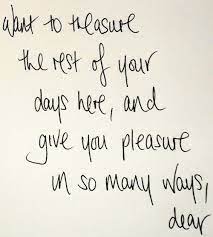 Want to treasure
the rest of your
days here, and
give you pleasure
in so many ways,
dear